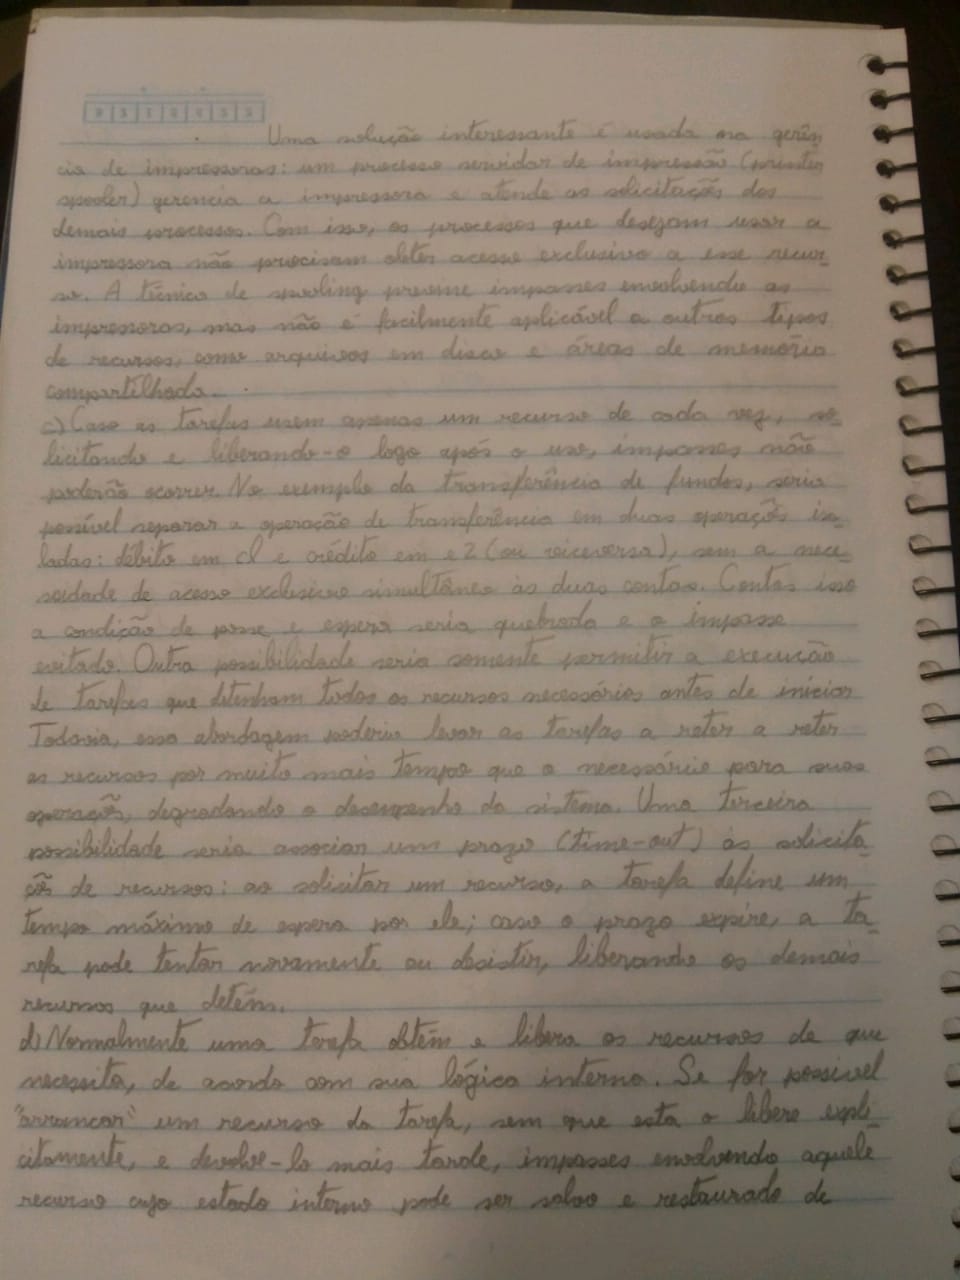 D S T Q Q S S
Uma solução interessante é usada na gerên
cia de impressoras: um processo servidor de impressão (printer
spooler) gerencia a impressora e atende as solicitações dos
demais processos. Com isso, os processos que desejam usar a
impressora não precisam obter acesso exclusivo a esse recur-
so. A técnica de spooling previne impasses envolvendo as
impressoras, mas não é facilmente aplicável a outros tipos
de recursos, como arquivos em disco e áreas de memória
compartilhada.
c) Caso as tarefas usem apenas um recurso de cada vez, so-
licitando e liberando-o logo após o uso, impasses não
poderão ocorrer. No exemplo da transferência de fundos, seria
possível separar a operação de transferência em duas operações iso-
ladas: débito em c1 e crédito em c2 (ou viceversa), sem a nece
ssidade de acesso exclusivo simultâneo às duas contas. Contas isso
a condição de posse e espera seria quebrada e o impasse
evitado. Outra possibilidade seria somente permitir a execução
de tarefas que detenham todos os recursos necessários antes de iniciar
Todavia, essa abordagem poderia levar as tarefas a reter a reter
os recursos por muito mais tempo que o necessário para suas
operações, degradando o desempenho do sistema. Uma terceira
possibilidade seria associar um prazo (time-out) às solicita-
ções de recursos: ao solicitar um recurso, a tarefa define um
tempo máximo de espera por ele; caso o prazo expire, a ta-
refa pode tentar novamente ou desistir, liberando os demais
recursos que detém.
d) Normalmente uma tarefa obtém e libera os recursos de que
necessita, de acordo com sua lógica interna. Se for possivel
"arrancar" um recurso da tarefa, sem que esta o libere expli-
citamente, e devolve-lo mais tarde, impasses envolvendo aquele
recurso cujo estado interno pode ser salvo e restaurado de